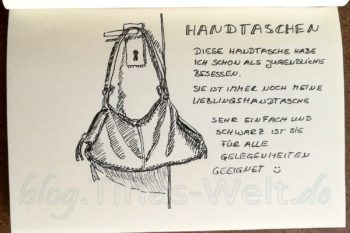 HANDTASCHEN
DIESE HANDTASCHE HABE
ICH SCHON ALS JUGENDLICHE
BESESSEN.
SIE IST IMMER NOCH MEINE
LIEBLINGSHANDTASCHE
SEHR EINFACH UND
SCHWARZ IST SIE
FÜR ALLE
GELEGENHEITEN
GEEIGNET ☺
blog.Tinas-Welt.de